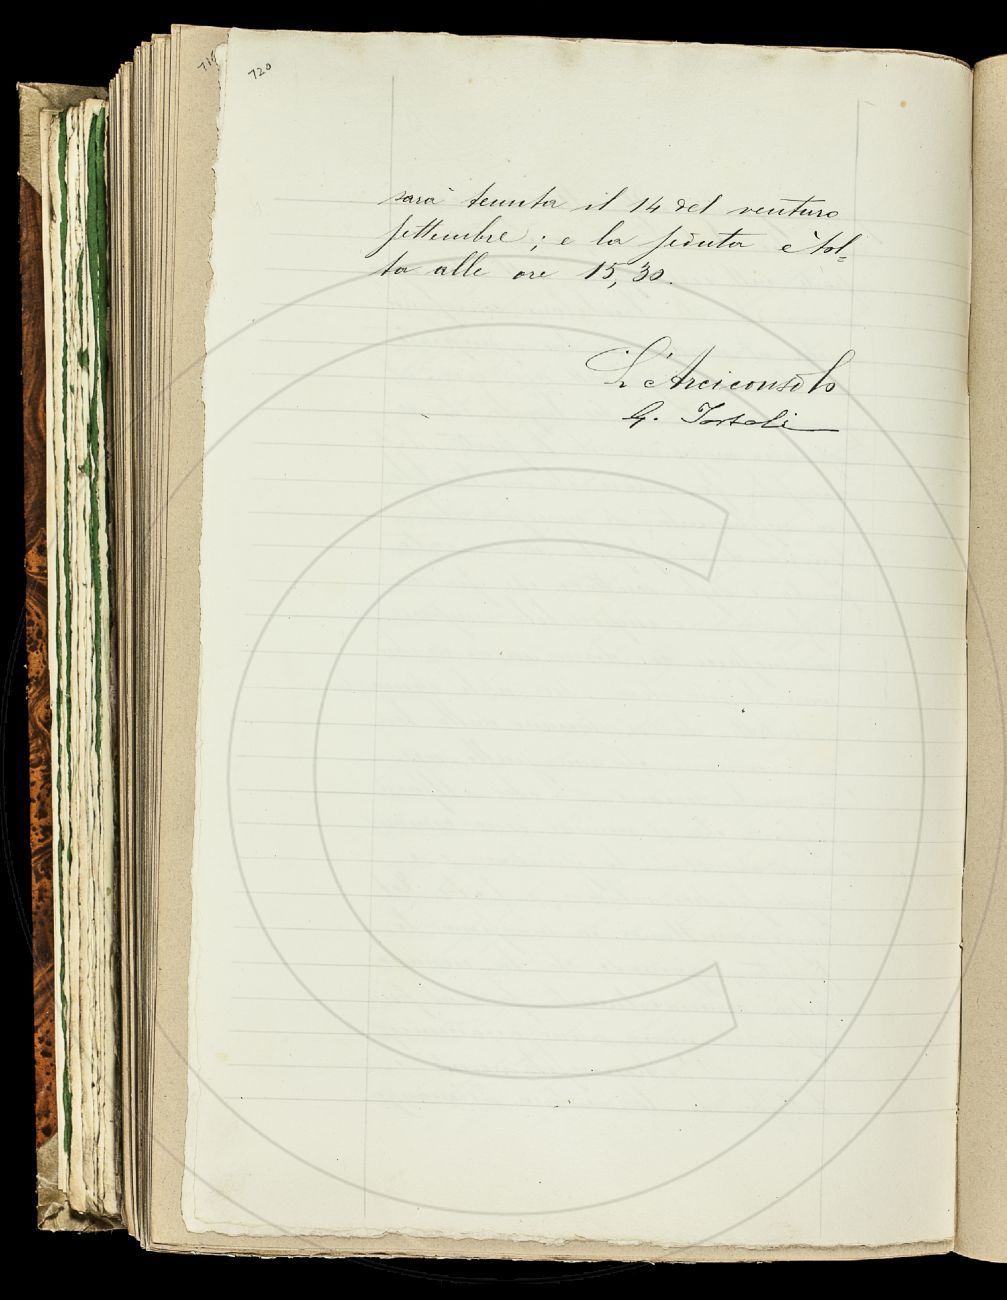 720
sarà tenuta il 14 del venturo
settembre; e la seduta è tol=
ta alle ore 15,30.
L'Arciconsolo
G. Tortoli